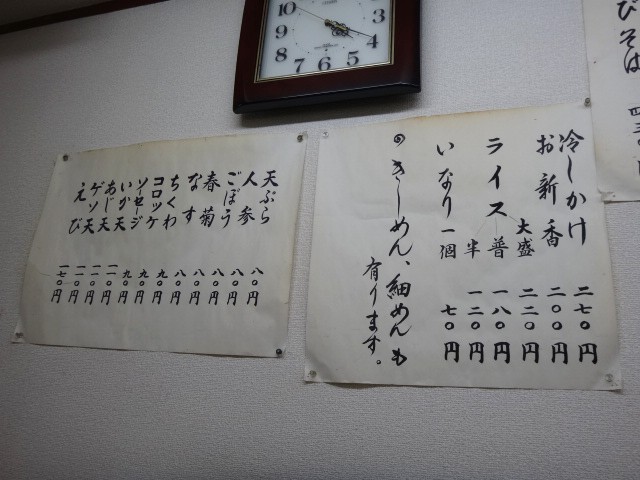 びそば 四三〇円
冷しかけ 二七〇円
お新香 二〇〇円
ライス 大盛 二二〇円
普 一八〇円
半 一二〇円
いなり一個 七〇円
◎きしめん、細めんも
有ります。
天ぷら 八〇円
人参 八〇円
ごぼう 八〇円
春菊 八〇円
なす 八〇円
ちくわ 九〇円
コロッケ 九〇円
ソーセージ 九〇円
いか天 一一〇円
あじ天 一一〇円
ゲソ天 一一〇円
えび 一七〇円
10
9
8
7
6
5
4
3